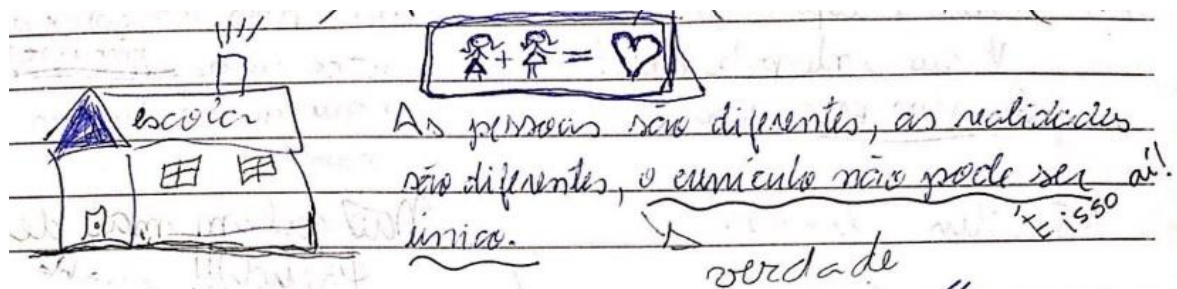 escola
As pessoas são diferentes, as realidades
são diferentes, o currículo não pode ser
único.
É isso aí!
verdade